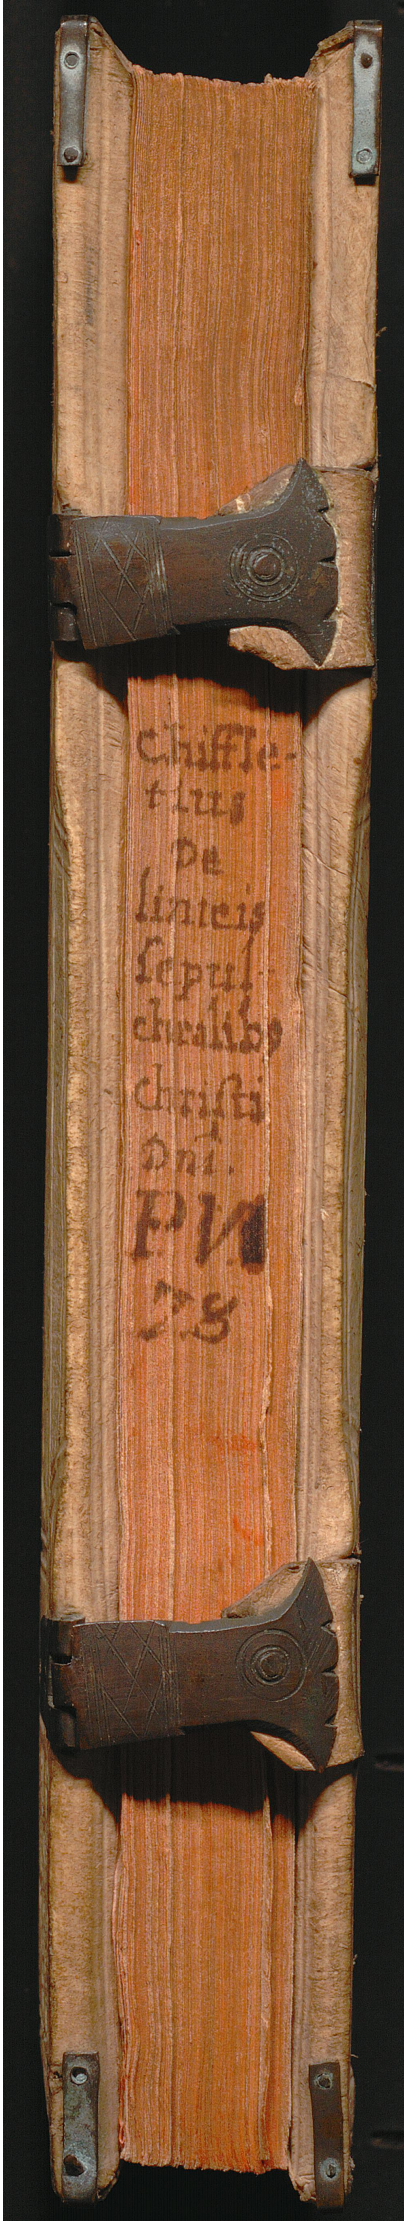 Chiffle-
tius
De
linteis
sepul-
chralibus
christi
Dnī.
PN
78